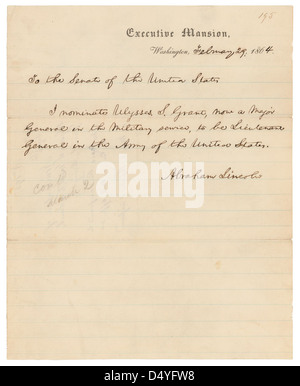 195
Executive Mansion,
Washington, February 29, 1864.
To the Senate of the United States
I nominate Ulysses S. Grant, now a Major
General in the Military service, to be Lieutenant
General in the Army of the United States.
Abraham Lincoln
March 2
alamy
Image ID: D4YFW8
www.alamy.com